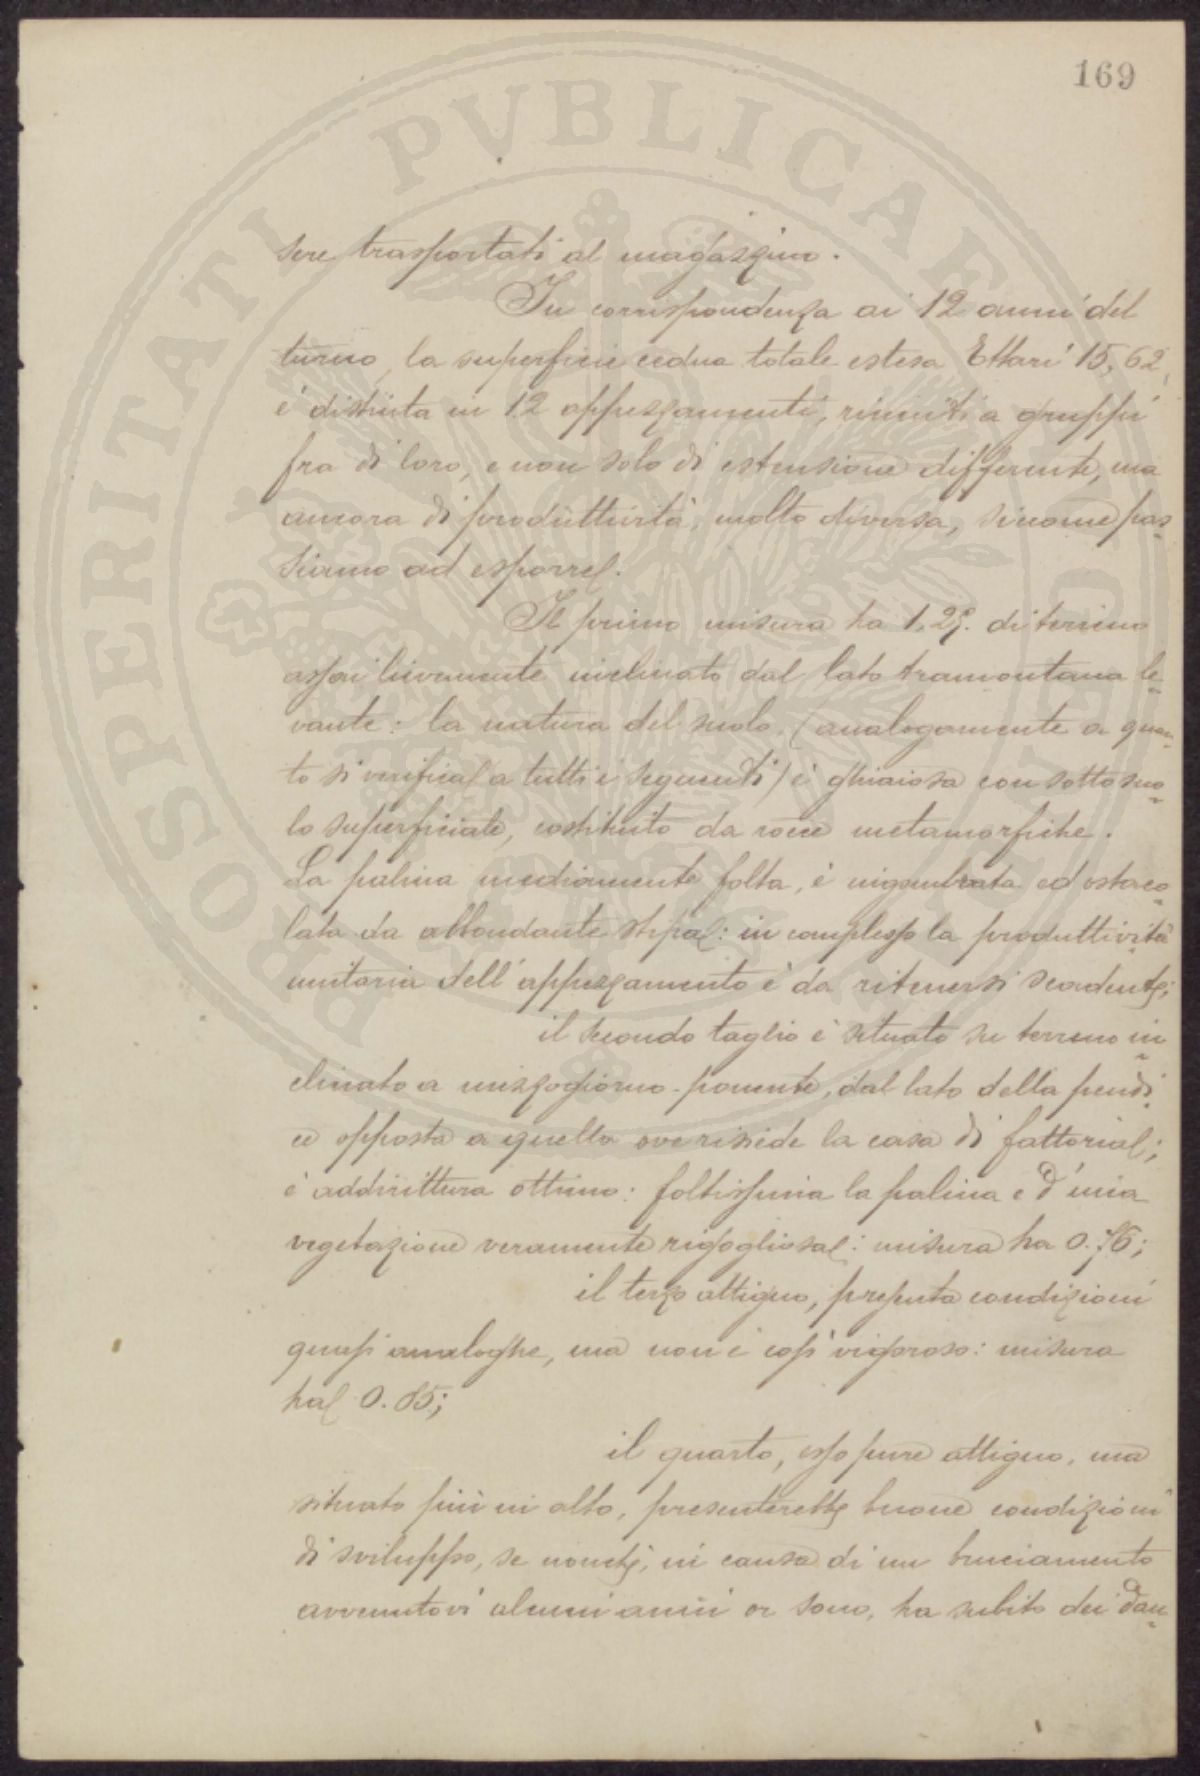 169
sere trasportati al magazzino.
In corrispondenza ai 12 anni del
turno, la superficie cedua totale estesa Ettari 15,62,
è distinta in 12 appezzamenti, riuniti a gruppi
fra di loro, e non solo di estensione differente, ma
ancora di produttività, molto diversa, siccome pas=
siamo ad esporre.
Il primo misura ha 1.29. di terreno
assai lievemente inclinato dal lato tramontana le=
vante: la natura del suolo, (analogamente a quan=
to si verifica a tutti i seguenti) è ghiaiosa con sottosuo=
lo superficiale, costituito da rocce metamorfiche.
La palina mediamente folta, è ingombrata ed ostaco=
lata da abbondante stipa: in complesso la produttività
unitaria dell'appezzamento è da ritenersi scadente;
il secondo taglio è situato su terreno in=
clinato a mezzogiorno-ponente, dal lato della pendi=
ce opposta a quella ove risiede la casa di fattoria;
è addirittura ottimo: foltissima la palina e d'una
vegetazione veramente rigogliosa: misura ha 0.76;
il terzo attiguo, presenta condizioni
quasi analoghe, ma non è così vigoroso: misura
ha 0.85;
il quarto, esso pure attiguo, ma
situato più in alto, presenterebbe buone condizioni
di sviluppo, se nonchè, in causa di un bruciamento
avvenutovi alcuni anni or sono, ha subito dei dan=
PROSPERITATI PVBLICAE